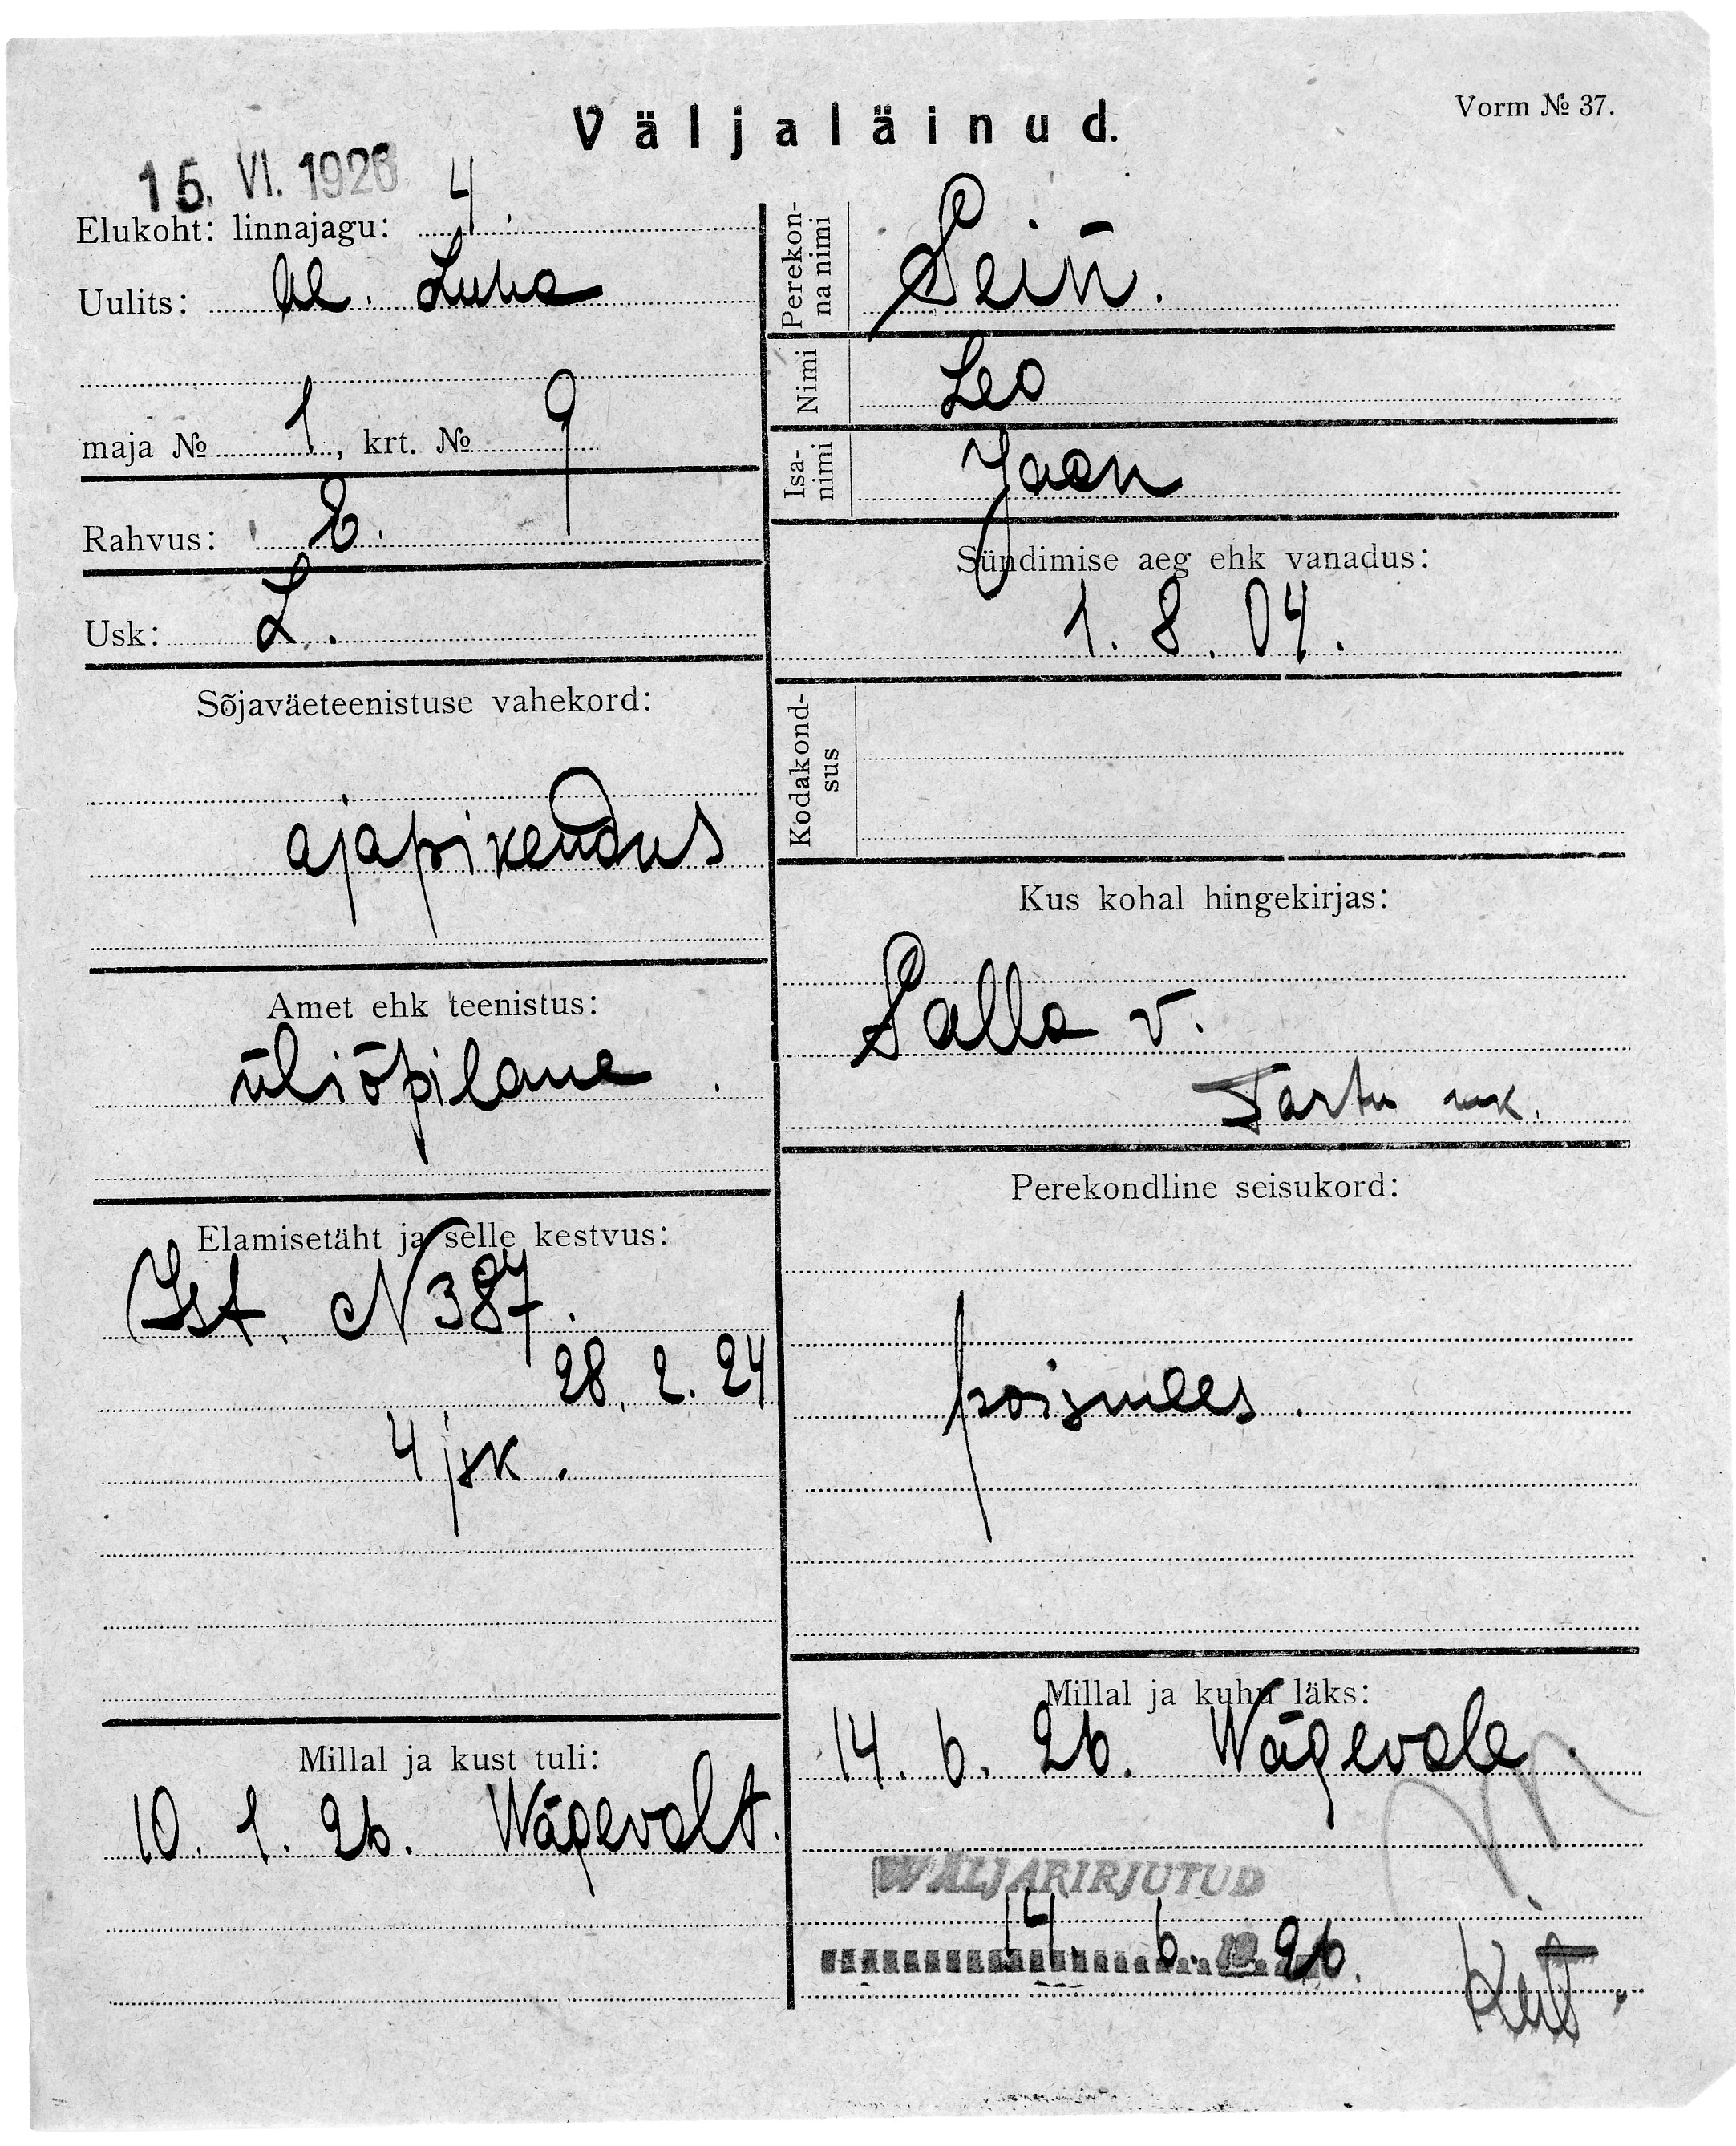 Väljaläinud.
Vorm № 37.
15. VI. 1926
Elukoht: linnajagu: 4.
Uulits: Luha
maja № 1, krt. № 9
Rahvus: E.
Usk: L.
Sõjaväeteenistuse vahekord:
ajapikendus
Amet ehk teenistus:
üliõpilane.
Elamisetäht ja selle kestvus:
Ist. N 387.
28. 2. 24
4 jsk.
Millal ja kust tuli:
10. 1. 26. Wägevalt.
Perekon-
na nimi
Sein.
Nimi
Leo
Isa-
nimi
Jaan
Sündimise aeg ehk vanadus:
1. 8. 04.
Kodakond-
sus
Kus kohal hingekirjas:
Salla v.
Tartu mk.
Perekondline seisukord:
poismees.
Millal ja kuhu läks:
14. 6. 26. Wägevale.
WÄLJAKIRJUTUD
14. 6. 19 26.